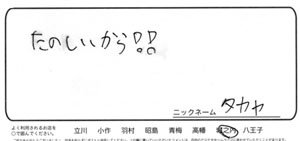 たのしいから!!
ニックネーム タカヤ
よく利用されるお店を
○で囲んでください。 立川 小作 羽村 昭島 青梅 高幡 堀之内 八王子